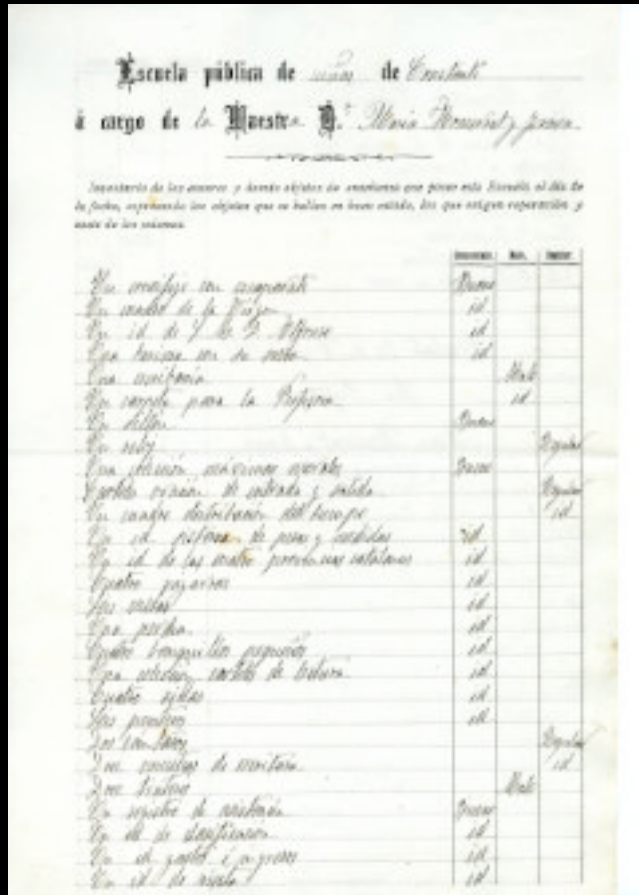 Escuela pública de niñas de Constantí
á cargo de la Maestra D.ª Maria
Inventario de los enseres y demás objetos de enseñanza que posee esta Escuela el día de
la fecha, expresando los objetos que se hallan en buen estado, los que exigen reparación y
de los mismos.
Un crucifijo con Bueno
Un cuadro de la Virgen id
Un id de S. M. D. Alfonso id
Una tarima con su id
Una escribanía Malo
Un carpeta para la Profesora id
Un sillón Bueno
Un reloj Regular
Una colección máximas morales Bueno
Carteles oración de entrada y salida Regular
Un cuadro distribución del tiempo id
Un id sistema de pesas y medidas id
Un id de las cuatro provincias catalanas id
Cuatro pizarras id
Dos mesas id
Una percha id
Cuatro banquillos pequeños id
Una colección carteles de lectura id
Cuatro sillas id
Dos id
Dos Regular
Doce muestras de escritura id
Doce tinteros Malo
Un registro de asistencia Bueno
Un id de clasificación id
Un id gastos é ingresos id
Un id de id